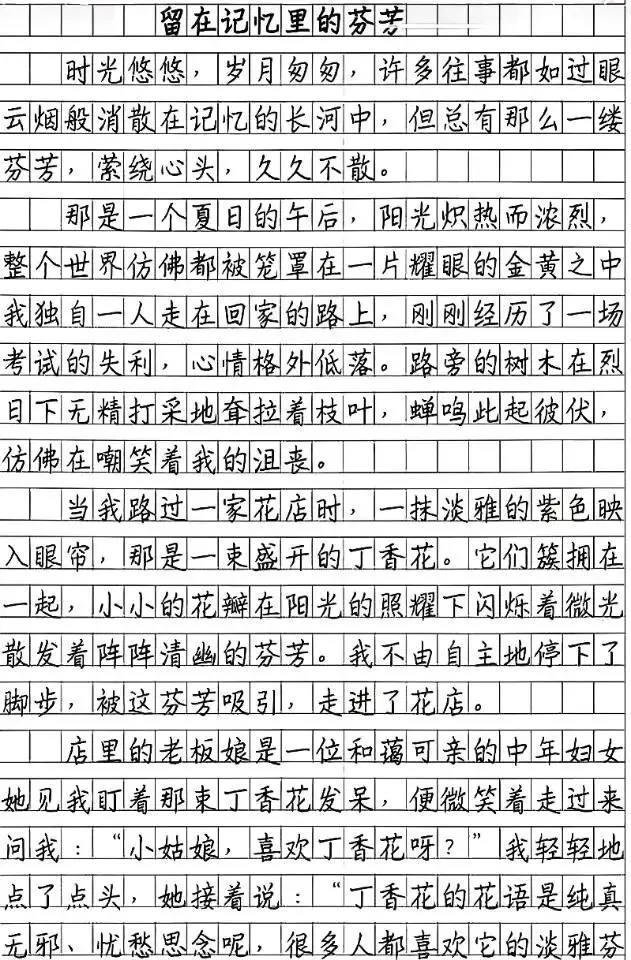 留在记忆里的芬芳
时光悠悠，岁月匆匆，许多往事都如过眼
云烟般消散在记忆的长河中，但总有那么一缕
芬芳，萦绕心头，久久不散。
那是一个夏日的午后，阳光炽热而浓烈，
整个世界仿佛都被笼罩在一片耀眼的金黄之中
我独自一人走在回家的路上，刚刚经历了一场
考试的失利，心情格外低落。路旁的树木在烈
日下无精打采地耷拉着枝叶，蝉鸣此起彼伏，
仿佛在嘲笑着我的沮丧。
当我路过一家花店时，一抹淡雅的紫色映
入眼帘，那是一束盛开的丁香花。它们簇拥在
一起，小小的花瓣在阳光的照耀下闪烁着微光
散发着阵阵清幽的芬芳。我不由自主地停下了
脚步，被这芬芳吸引，走进了花店。
店里的老板娘是一位和蔼可亲的中年妇女
她见我盯着那束丁香花发呆，便微笑着走过来
问我：“小姑娘，喜欢丁香花呀？”我轻轻地
点了点头，她接着说：“丁香花的花语是纯真
无邪、忧愁思念呢，很多人都喜欢它的淡雅芬